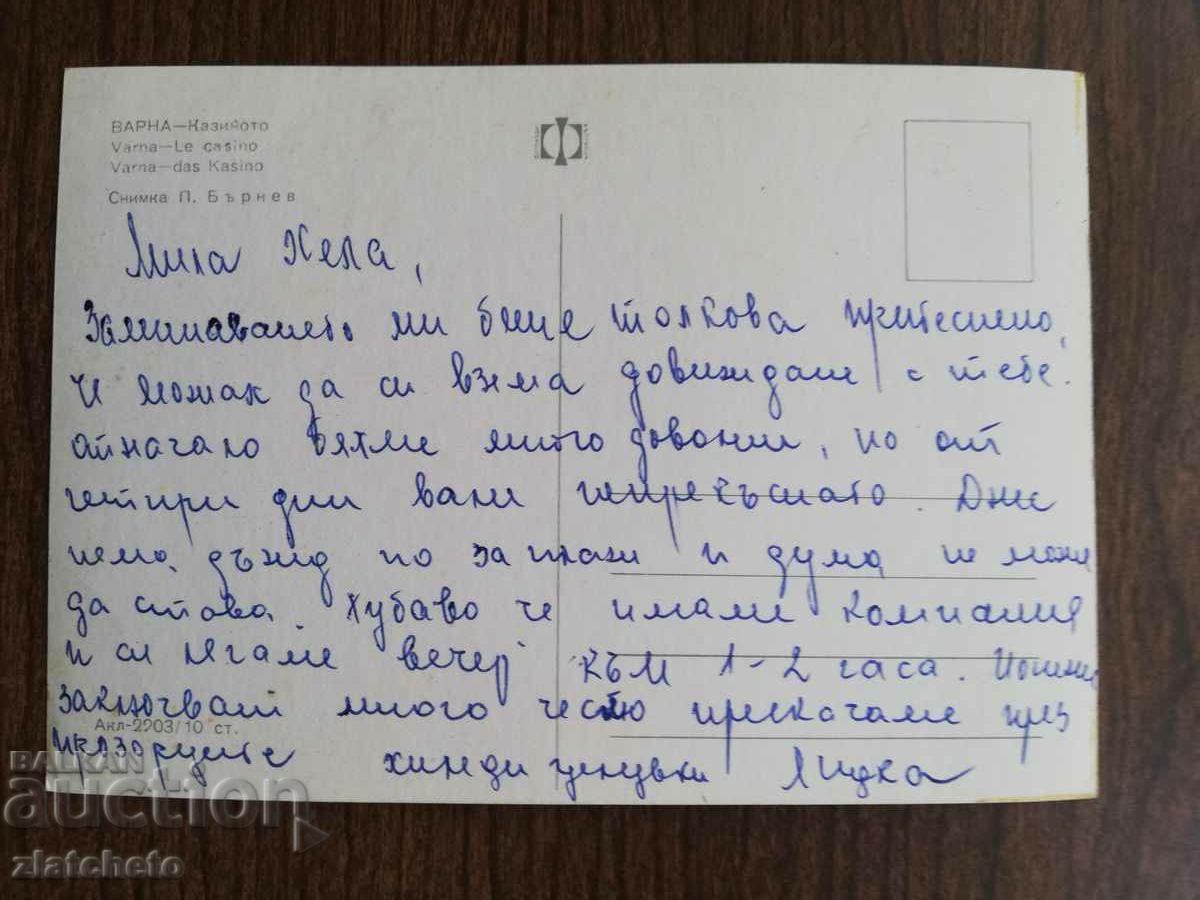 ВАРНА—Казиното
Varna—Le casino
Varna—das Kasino
Снимка П. Бърнев
Мила Хела,
Заминаването ми беше толкова притеснено,
че можах да си взема довиждане с тебе.
отначало бяхме много доволни, но от
четири дни вали непрекъснато. Днес
няма дъжд но за плаж и дума не може
да става. Хубаво че имаме компания
и си лягаме вечер към 1-2 часа.
заключват много често прескачаме през
прозорците хиляди целувки Лидка
Акл-2203/10 ст.
BALKAN
auction
zlatcheto